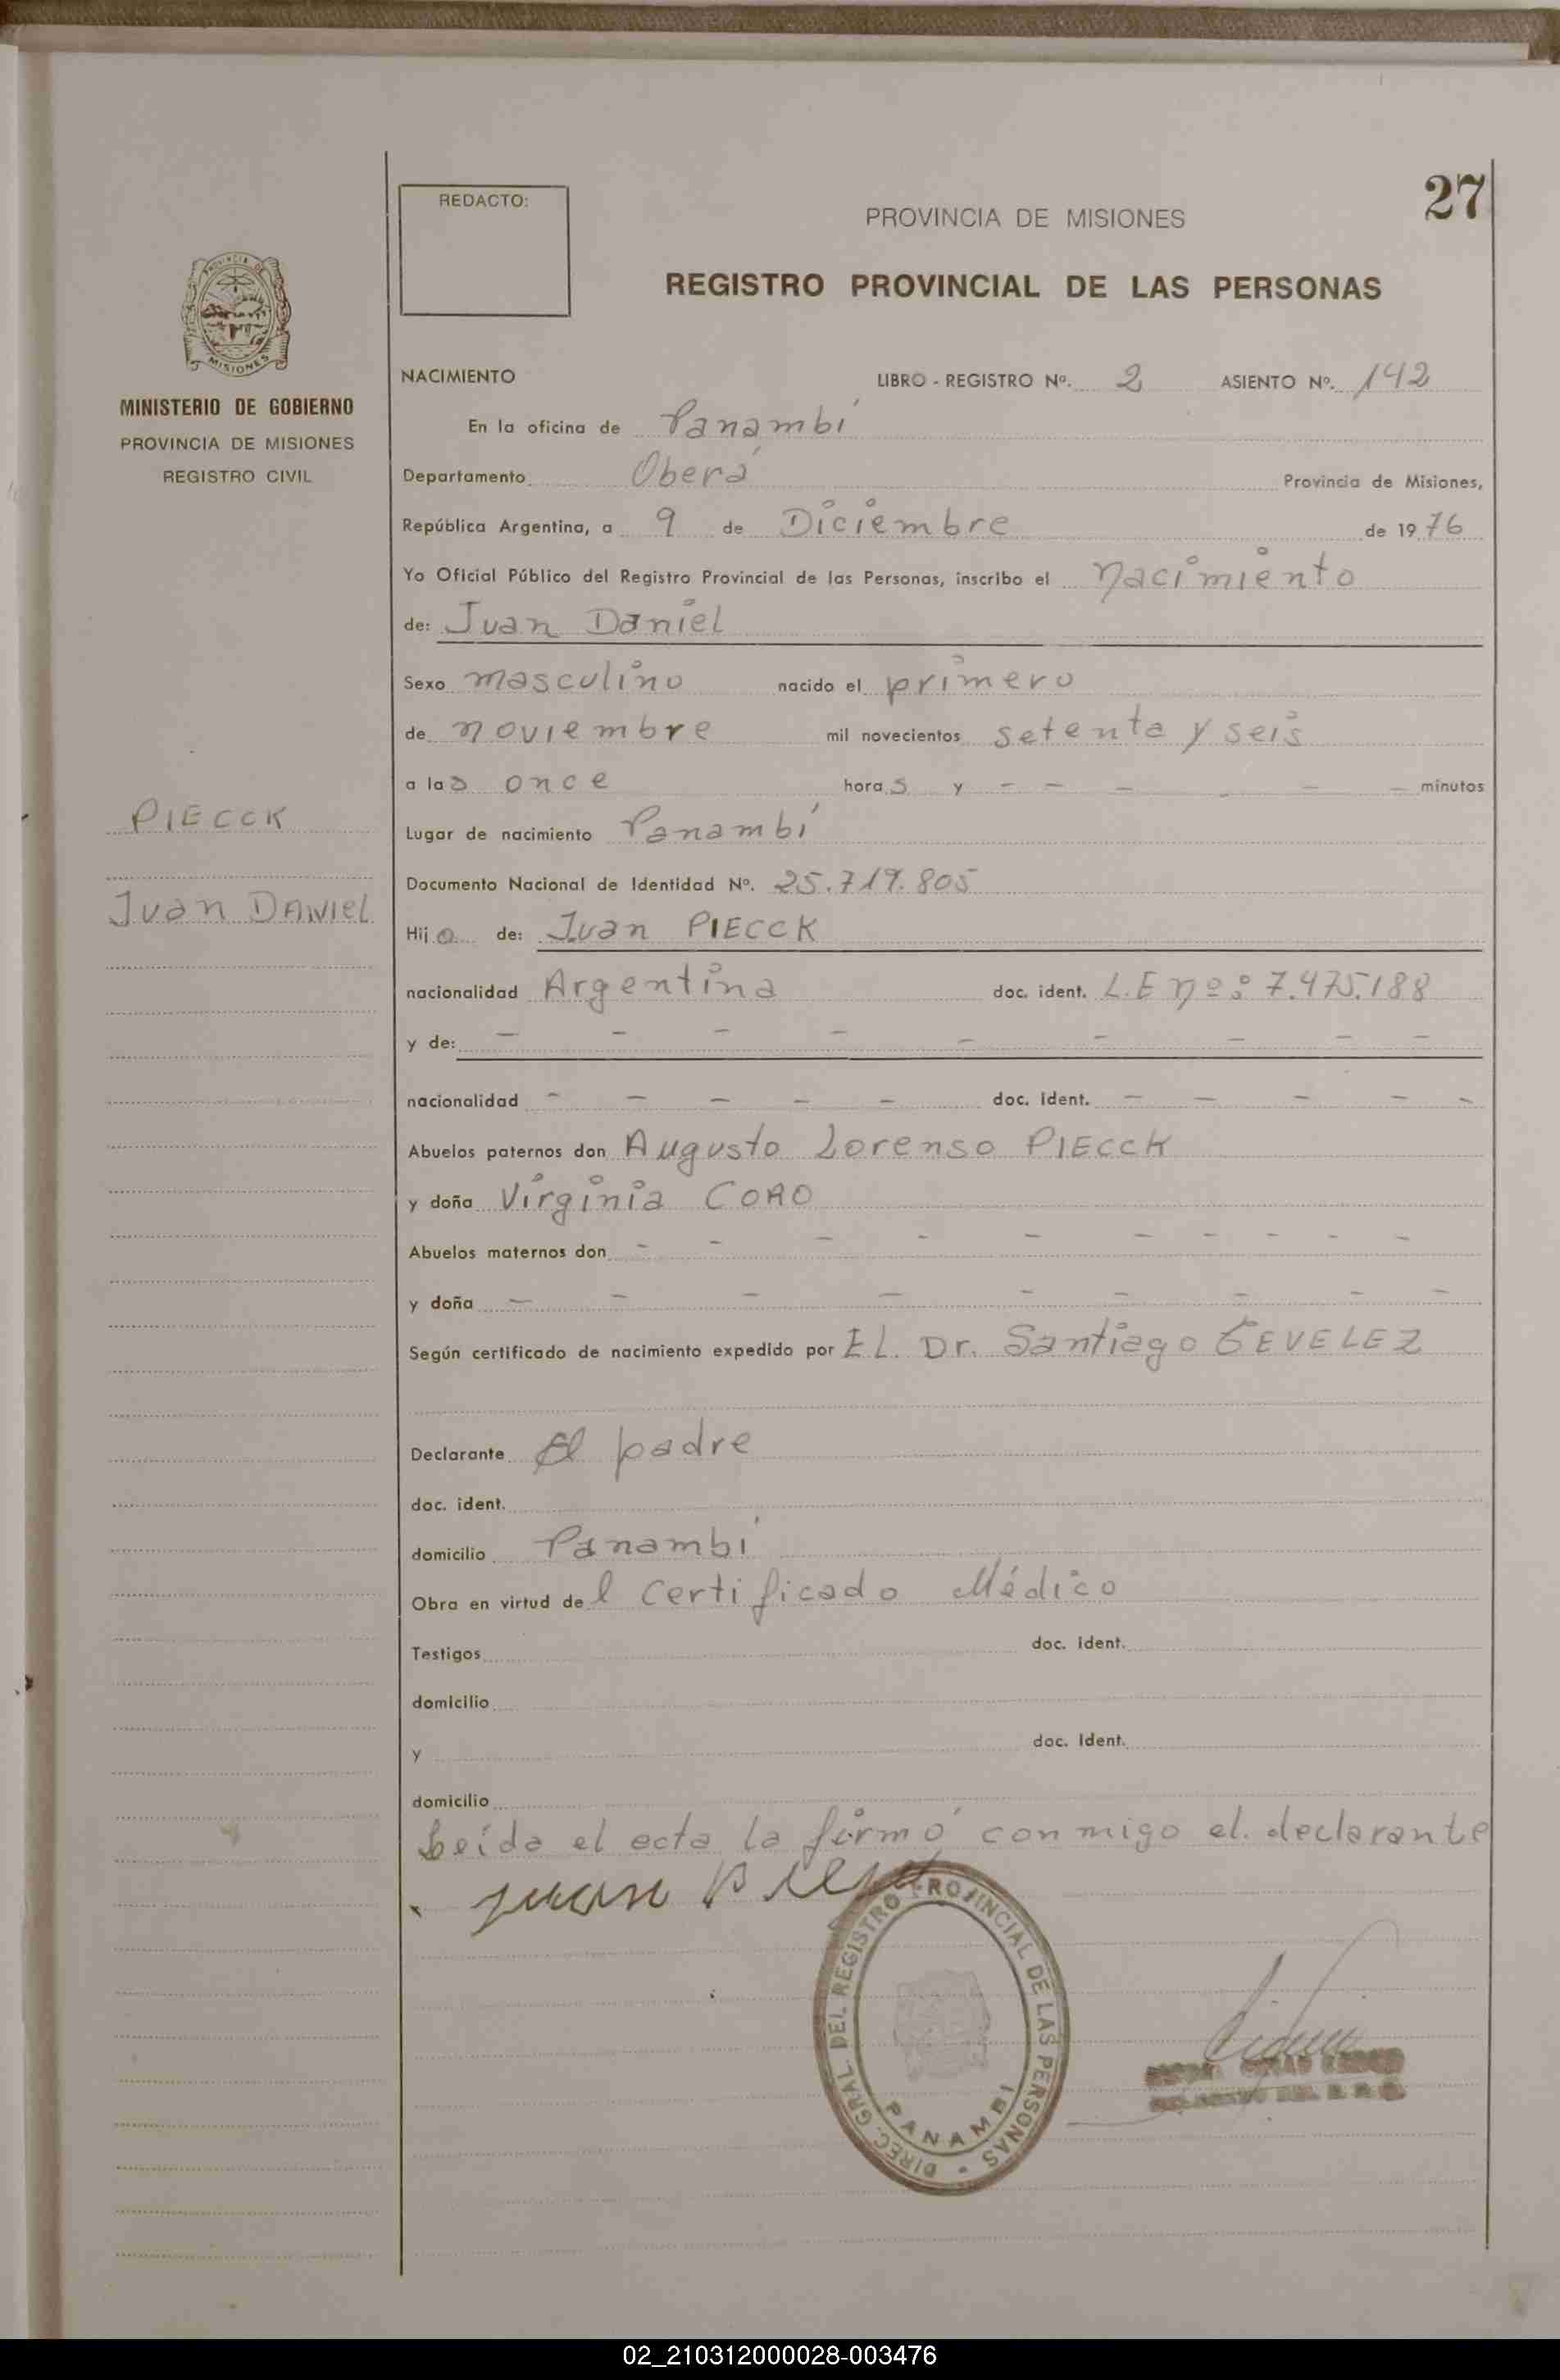 27
REDACTO:
PROVINCIA DE MISIONES
REGISTRO PROVINCIAL DE LAS PERSONAS
PROVINCIA DE
MISIONES
MINISTERIO DE GOBIERNO
PROVINCIA DE MISIONES
REGISTRO CIVIL
NACIMIENTO LIBRO - REGISTRO Nº. 2 ASIENTO Nº. 142
En la oficina de Panambí
Departamento Oberá Provincia de Misiones,
República Argentina, a 9 de Diciembre de 1976
Yo Oficial Público del Registro Provincial de las Personas, inscribo el nacimiento
de: Juan Daniel
Sexo masculino nacido el primero
de noviembre mil novecientos setenta y seis
a las once horas y - - - - - minutos
PIECCK
Lugar de nacimiento Panambí
Documento Nacional de Identidad Nº. 25.719.805
Juan DANIEL
Hijo de: Juan PIECCK
nacionalidad Argentina doc. ident. L.E nº: 7.475.188
y de: - - - - - - - - -
nacionalidad - - - - - doc. ident. - - - - -
Abuelos paternos don Augusto Lorenso PIECCK
y doña Virginia CORO
Abuelos maternos don - - - - - - - - - -
y doña - - - - - - - - -
Según certificado de nacimiento expedido por EL. Dr. Santiago GEVELEZ
Declarante El padre
doc. ident.
domicilio Panambí
Obra en virtud del Certificado Médico
Testigos doc. ident.
domicilio
y doc. ident.
domicilio
Leída el acta la firmó conmigo el declarante
Juan
DIREC. GRAL. DEL REGISTRO PROVINCIAL DE LAS PERSONAS -
PANAMBI
02_210312000028-003476